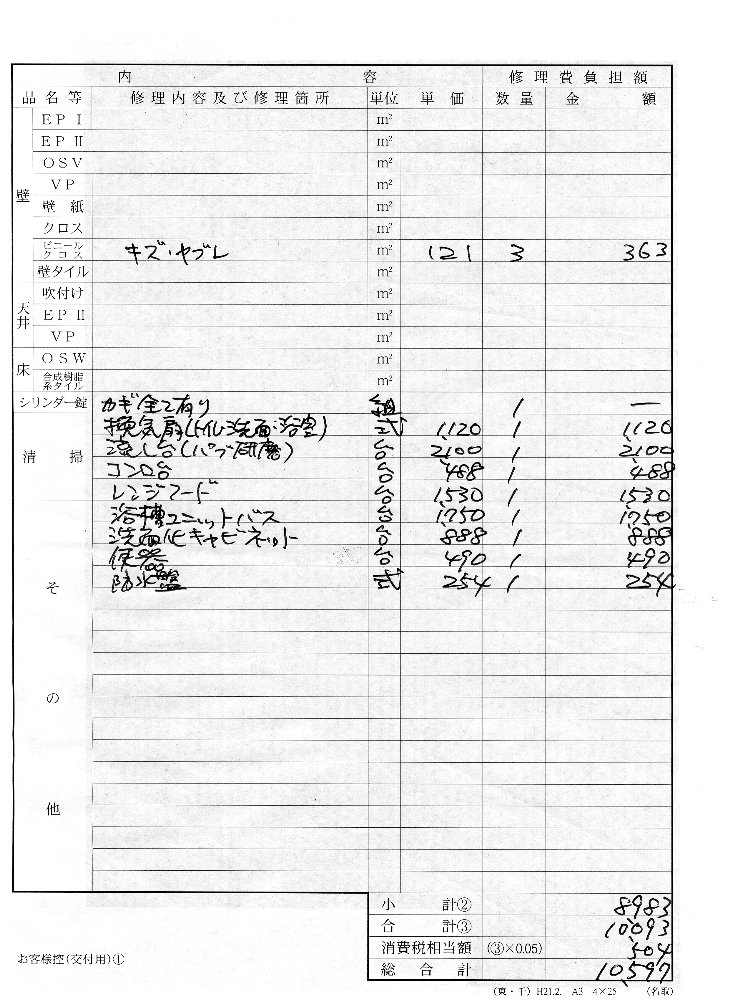 内 容 修理費負担額
品名等 修理内容及び修理箇所 単位 単価 数量 金額
壁
EP I m²
EP II m²
OSV m²
VP m²
壁紙 m²
クロス m²
ビニールクロス キズ・ヤブレ m² 121 3 363
壁タイル m²
天井
吹付け m²
EP II m²
VP m²
床
OSW m²
合成樹脂系タイル m²
シリンダー錠 カギ全て有り 組 1 ―
換気扇(トイレ洗面浴室) 式 1,120 1 1,120
清掃 流し台(パフ研磨) 台 2,100 1 2,100
コンロ台 台 488 1 488
レンジフード 台 1,530 1 1,530
浴槽ユニットバス 台 1,750 1 1,750
洗面化キャビネット 台 888 1 888
便器 台 490 1 490
その他 防水盤 式 254 1 254
小計② 8,983
合計③ 10,093
消費税相当額 (③×0.05) 504
総合計 10,597
お客様控(交付用)①
(東・千) H21.2. A3 4×25 (名取)